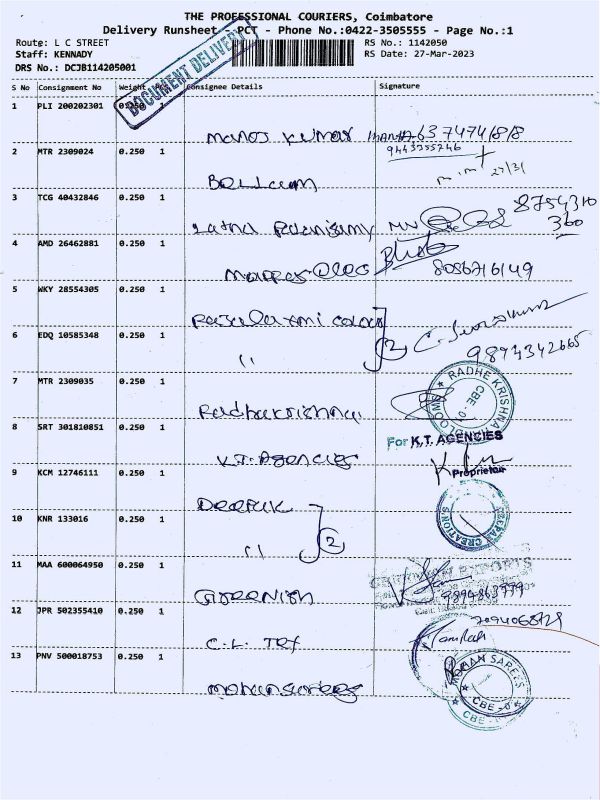 THE PROFESSIONAL COURIERS, Coimbatore
Delivery Runsheet - PCT - Phone No.:0422-3505555 - Page No.:1
Route: L C STREET
RS No.: 1142050
Staff: KENNADY
RS Date: 27-Mar-2023
DRS No.: DCJB114205001
DOCUMENT DELIVERY
S No Consignment No Weight Consignee Details Signature
1 PLI 200202301 0.250
Manoj Kumar 6374741818
9443355246
2 MTR 2309024 0.250 1
27/31
3 TCG 40432846 0.250 1
8754310
360
4 AMD 26462881 0.250 1
8056716149
5 WKY 28554305 0.250 1
6 EDQ 10585348 0.250 1
11 2
9894342665
7 MTR 2309035 0.250 1
Radhakrishna
RADHE KRISHNA
CBE
8 SRT 301810851 0.250 1
K.T. Agencies
For K.T. AGENCIES
Proprietor
9 KCM 12746111 0.250 1
Deepak
10 KNR 133016 0.250 1
11 2
DEEPAK CREATIONS
11 MAA 600064950 0.250 1
Greenish
9894863999
12 JPR 502355410 0.250 1
C.L. Tex
7094068729
13 PNV 500018753 0.250 1
Mohan Sarees
MOHAN SAREES
CBE